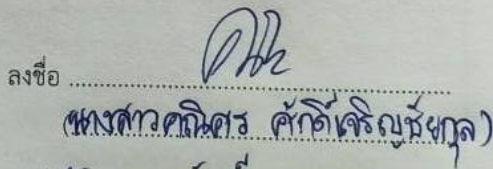 ลงชื่อ
(นางสาวคณิศร ศักดิ์เจริญชัยกุล)